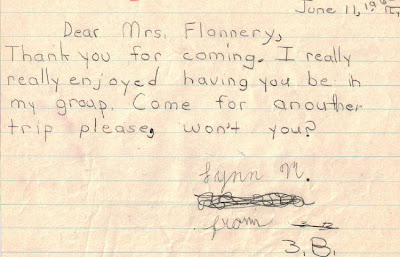 June 11, 19
Dear Mrs. Flannery,
Thank you for coming. I really
really enjoyed having you be in
my group. Come for anouther
trip please, won't you?
Lynn N.
from
3.B.